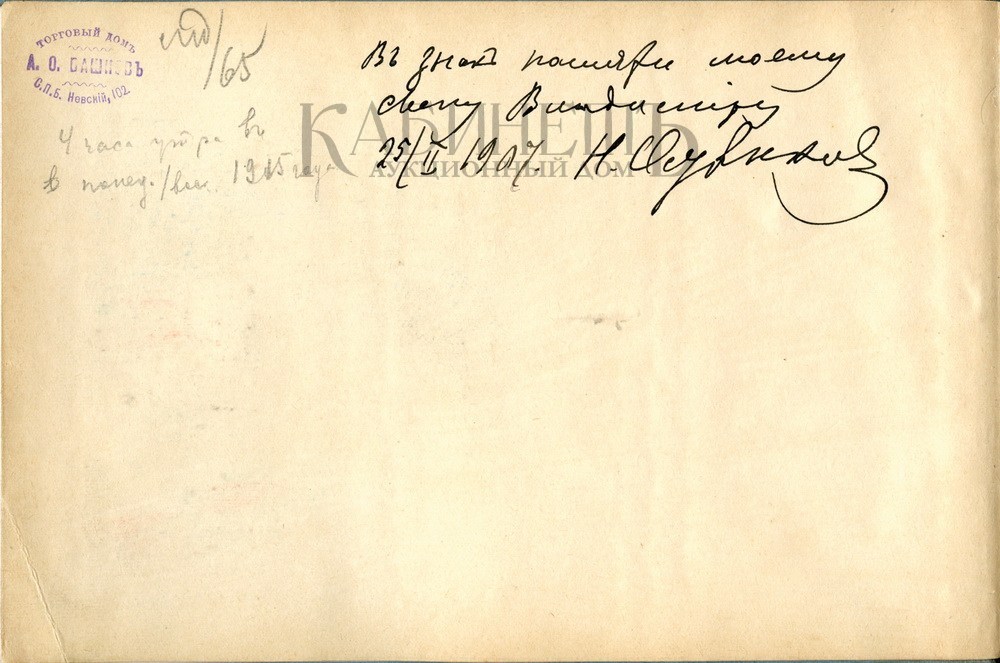 ТОРГОВЫЙ ДОМЪ
А. О. БАШКОВЪ
С.П.Б. Невскій, 102
/65
Въ знакъ памяти моему
сыну Владиміру
25/II 1907. Н.
4 часа утра въ
в понед. 1915 года
КАБИНЕТЪ
АУКЦИОННЫЙ ДОМ